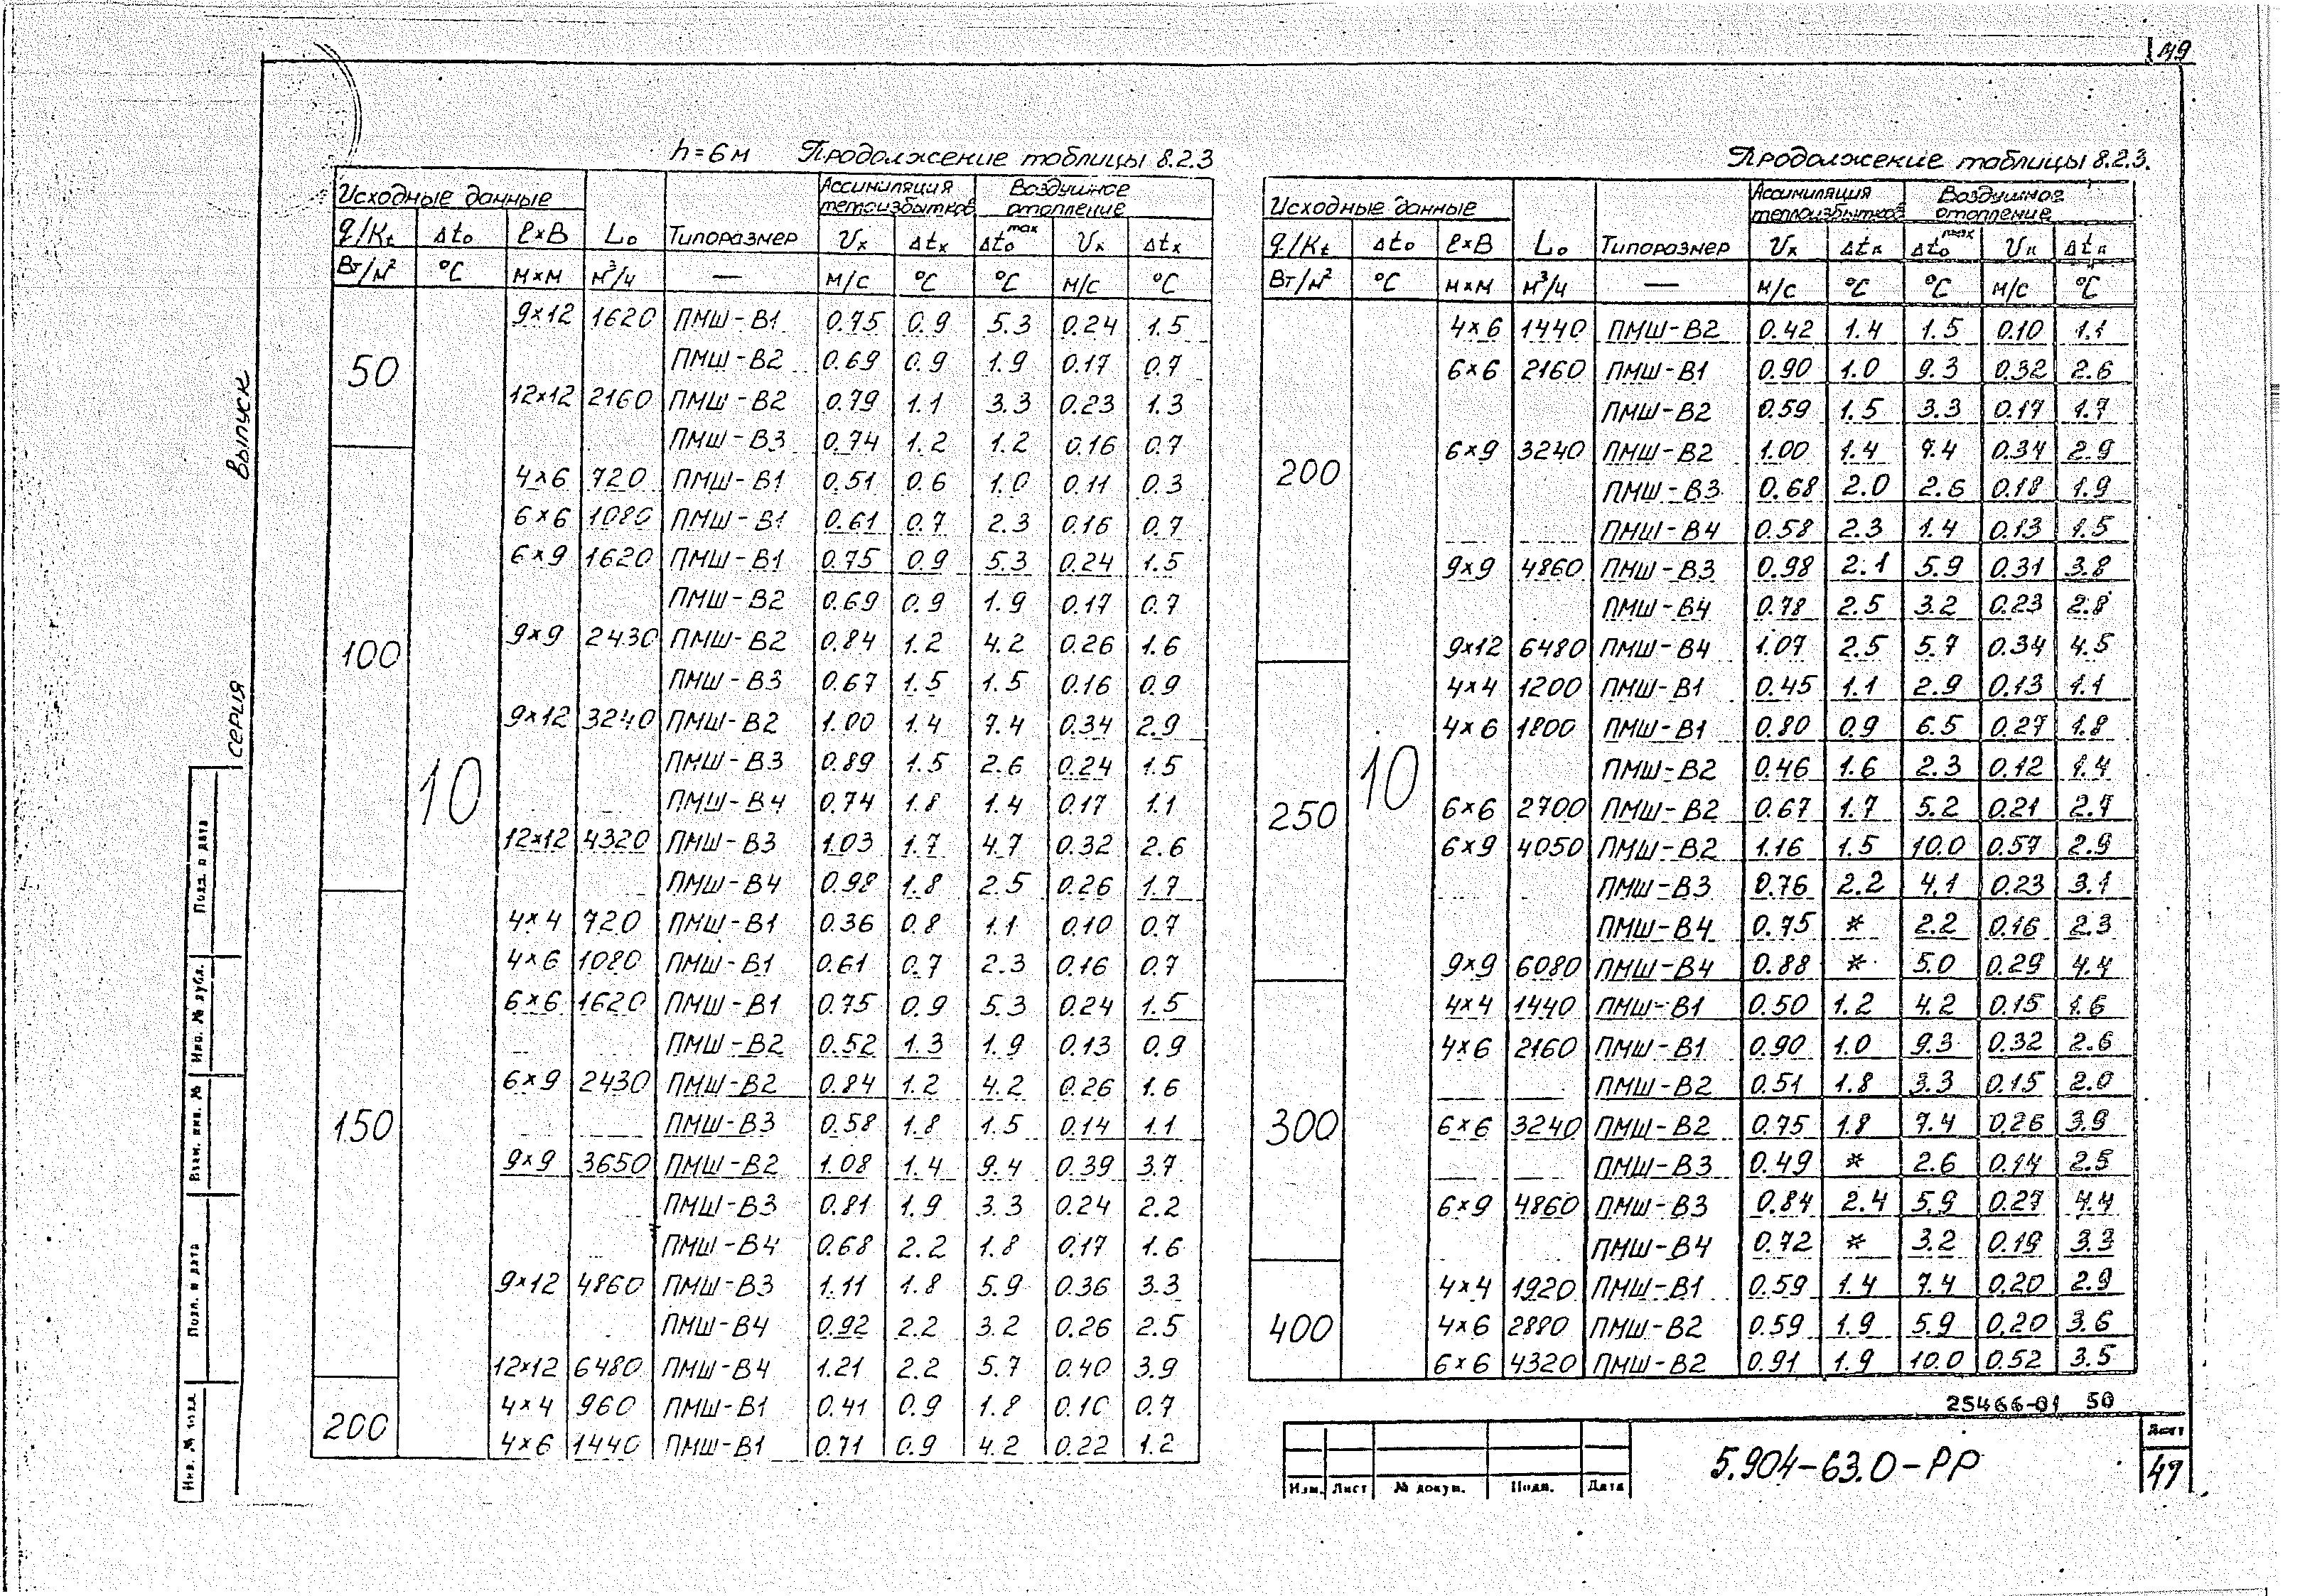 49
h=6м Продолжение таблицы 8.2.3
Исходные данные Lо Типоразмер Ассимиляция теплоизбытков Воздушное отопление
q/Kt Δtо ℓ×B Vх Δtх Δtо max Vх Δtх
Вт/м² °С м×м м³/ч — м/с °С °С м/с °С
50 10 9×12 1620 ПМШ-В1 0.75 0.9 5.3 0.24 1.5
ПМШ-В2 0.69 0.9 1.9 0.17 0.7
12×12 2160 ПМШ-В2 0.79 1.1 3.3 0.23 1.3
ПМШ-В3 0.74 1.2 1.2 0.16 0.7
100 4×6 720 ПМШ-В1 0.51 0.6 1.0 0.11 0.3
6×6 1080 ПМШ-В1 0.61 0.7 2.3 0.16 0.7
6×9 1620 ПМШ-В1 0.75 0.9 5.3 0.24 1.5
ПМШ-В2 0.69 0.9 1.9 0.17 0.7
9×9 2430 ПМШ-В2 0.84 1.2 4.2 0.26 1.6
ПМШ-В3 0.67 1.5 1.5 0.16 0.9
9×12 3240 ПМШ-В2 1.00 1.4 7.4 0.34 2.9
ПМШ-В3 0.89 1.5 2.6 0.24 1.5
ПМШ-В4 0.74 1.8 1.4 0.17 1.1
12×12 4320 ПМШ-В3 1.03 1.7 4.7 0.32 2.6
ПМШ-В4 0.98 1.8 2.5 0.26 1.7
150 4×4 720 ПМШ-В1 0.36 0.8 1.1 0.10 0.7
4×6 1080 ПМШ-В1 0.61 0.7 2.3 0.16 0.7
6×6 1620 ПМШ-В1 0.75 0.9 5.3 0.24 1.5
ПМШ-В2 0.52 1.3 1.9 0.13 0.9
6×9 2430 ПМШ-В2 0.84 1.2 4.2 0.26 1.6
ПМШ-В3 0.58 1.8 1.5 0.14 1.1
9×9 3650 ПМШ-В2 1.08 1.4 9.4 0.39 3.7
ПМШ-В3 0.81 1.9 3.3 0.24 2.2
ПМШ-В4 0.68 2.2 1.8 0.17 1.6
9×12 4860 ПМШ-В3 1.11 1.8 5.9 0.36 3.3
ПМШ-В4 0.92 2.2 3.2 0.26 2.5
12×12 6480 ПМШ-В4 1.21 2.2 5.7 0.40 3.9
200 4×4 960 ПМШ-В1 0.41 0.9 1.8 0.10 0.7
4×6 1440 ПМШ-В1 0.71 0.9 4.2 0.22 1.2
Продолжение таблицы 8.2.3.
Исходные данные Lо Типоразмер Ассимиляция теплоизбытков Воздушное отопление
q/Kt Δtо ℓ×B Vх Δtп Δtо max Vп Δtп
Вт/м² °С м×м м³/ч — м/с °С °С м/с °С
200 10 4×6 1440 ПМШ-В2 0.42 1.4 1.5 0.10 1.1
6×6 2160 ПМШ-В1 0.90 1.0 9.3 0.32 2.6
ПМШ-В2 0.59 1.5 3.3 0.17 1.7
6×9 3240 ПМШ-В2 1.00 1.4 7.4 0.34 2.9
ПМШ-В3 0.68 2.0 2.6 0.18 1.9
ПМШ-В4 0.58 2.3 1.4 0.13 1.5
9×9 4860 ПМШ-В3 0.98 2.1 5.9 0.31 3.8
ПМШ-В4 0.78 2.5 3.2 0.23 2.8
9×12 6480 ПМШ-В4 1.07 2.5 5.7 0.34 4.5
250 4×4 1200 ПМШ-В1 0.45 1.1 2.9 0.13 1.1
4×6 1800 ПМШ-В1 0.80 0.9 6.5 0.27 1.8
ПМШ-В2 0.46 1.6 2.3 0.12 1.4
6×6 2700 ПМШ-В2 0.67 1.7 5.2 0.21 2.7
6×9 4050 ПМШ-В2 1.16 1.5 10.0 0.57 2.9
ПМШ-В3 0.76 2.2 4.1 0.23 3.1
ПМШ-В4 0.75 * 2.2 0.16 2.3
9×9 6080 ПМШ-В4 0.88 * 5.0 0.29 4.4
300 4×4 1440 ПМШ-В1 0.50 1.2 4.2 0.15 1.6
4×6 2160 ПМШ-В1 0.90 1.0 9.3 0.32 2.6
ПМШ-В2 0.51 1.8 3.3 0.15 2.0
6×6 3240 ПМШ-В2 0.75 1.8 7.4 0.26 3.9
ПМШ-В3 0.49 * 2.6 0.14 2.5
6×9 4860 ПМШ-В3 0.84 2.4 5.9 0.27 4.4
ПМШ-В4 0.72 * 3.2 0.19 3.3
400 4×4 1920 ПМШ-В1 0.59 1.4 7.4 0.20 2.9
4×6 2880 ПМШ-В2 0.59 1.9 5.9 0.20 3.6
6×6 4320 ПМШ-В2 0.91 1.9 10.0 0.52 3.5
25466-01 50
Изм. Лист № докум. Подп. Дата
5.904-63.0-РР
Лист
47
серия Выпуск
Подп. и дата
Инв. № дубл.
Взам. инв. №
Подп. и дата
Инв. № подл.